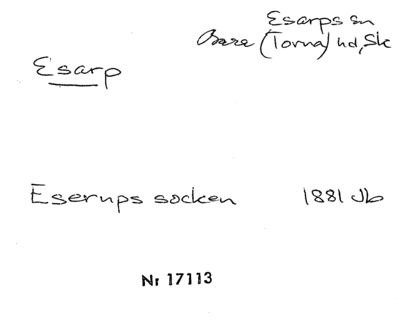 Esarps sn
Bara (Torna) hd, Sk
Esarp
Eserups socken 1881 Jb
Nr 17113